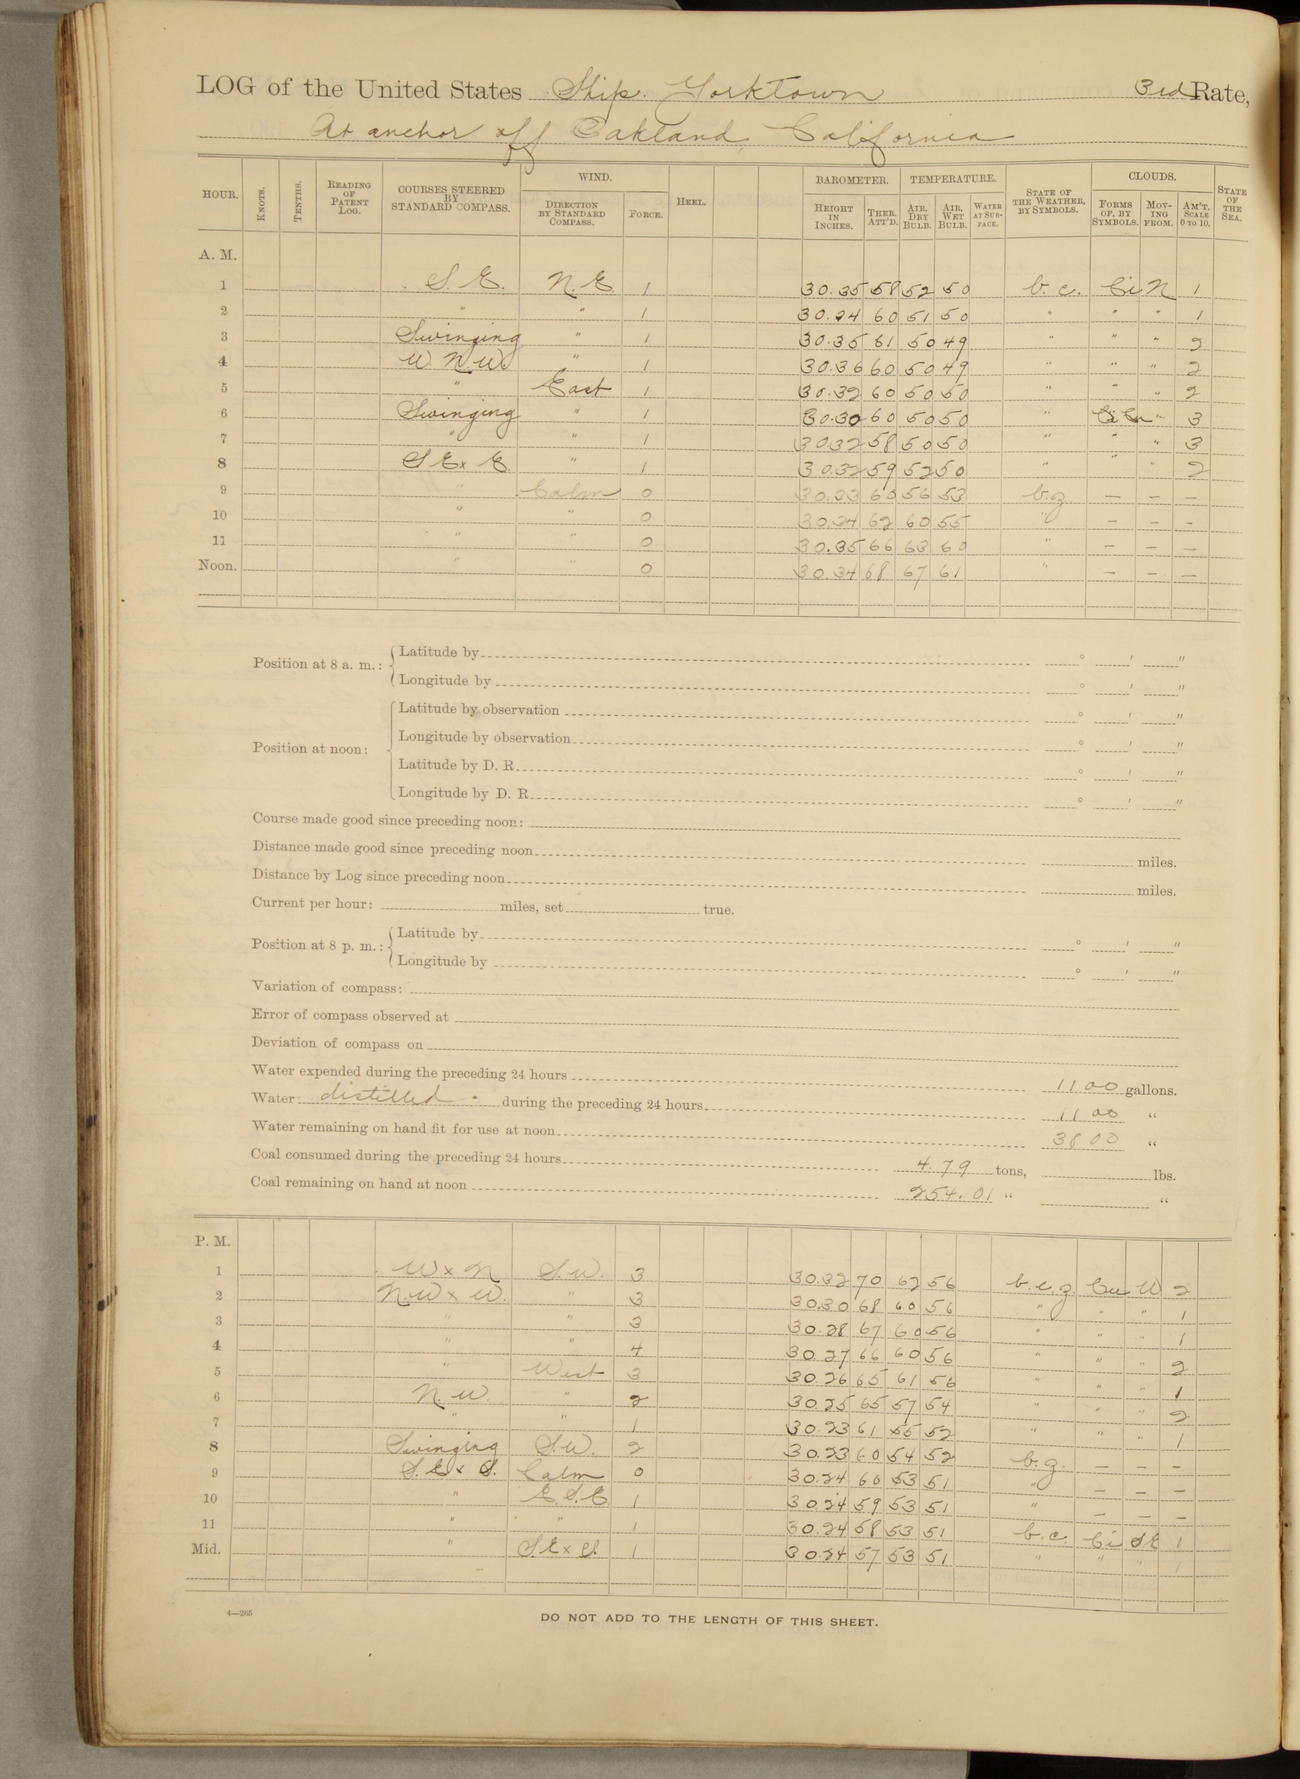 LOG of the United States Ship Yorktown 3rd Rate,
At anchor off Oakland, California
HOUR. KNOTS. TENTHS. READING OF PATENT LOG. COURSES STEERED BY STANDARD COMPASS. WIND. DIRECTION BY STANDARD COMPASS. FORCE. HEEL. BAROMETER. HEIGHT IN INCHES. THER. ATT'D. TEMPERATURE. AIR, DRY BULB. AIR, WET BULB. WATER AT SURFACE. STATE OF THE WEATHER, BY SYMBOLS. CLOUDS. FORMS OF, BY SYMBOLS. MOVING FROM. AM'T. SCALE 0 TO 10. STATE OF THE SEA.
A. M.
1 S. E. N. E 1 30.35 58 52 50 b. c. Ci N 1
2 " " 1 30.34 60 51 50 " " " 1
3 Swinging " 1 30.35 61 50 49 " " " 2
4 W. N. W. " 1 30.36 60 50 49 " " " 2
5 " East 1 30.32 60 50 50 " " " 2
6 Swinging " 1 30.30 60 50 50 " Ci Cu " 3
7 " " 1 30.32 58 50 50 " " " 3
8 S E x E. " 1 30.32 59 52 50 " " " 2
9 " Calm 0 30.33 60 56 53 b.z — — —
10 " " 0 30.34 62 60 55 " — — -
11 " " 0 30.35 66 63 60 " — — —
Noon. " " 0 30.34 68 67 61 " — — —
Position at 8 a. m.: Latitude by ° ' "
Longitude by ° ' "
Position at noon: Latitude by observation ° ' "
Longitude by observation ° ' "
Latitude by D. R. ° ' "
Longitude by D. R. ° ' "
Course made good since preceding noon:
Distance made good since preceding noon miles.
Distance by Log since preceding noon miles.
Current per hour: miles, set true.
Position at 8 p. m.: Latitude by ° ' "
Longitude by ° ' "
Variation of compass:
Error of compass observed at
Deviation of compass on
Water expended during the preceding 24 hours 1100 gallons.
Water distilled during the preceding 24 hours 1100 "
Water remaining on hand fit for use at noon 3800 "
Coal consumed during the preceding 24 hours 4.79 tons, lbs.
Coal remaining on hand at noon 254.01 " "
P. M.
1 W x N S.W. 3 30.32 70 62 56 b.c.z Cu W 2
2 N.W x W. " 3 30.30 68 60 56 " " " 1
3 " " 3 30.28 67 60 56 " " " 1
4 " " 4 30.27 66 60 56 " " " 2
5 " West 3 30.26 65 61 56 " " " 1
6 N. W. " 2 30.25 65 57 54 " " " 2
7 " " 1 30.23 61 55 52 " " " 1
8 Swinging S.W. 2 30.23 60 54 52 b.z. — — -
9 S. E x S. Calm 0 30.24 60 53 51 " — — —
10 " E S. E 1 30.24 59 53 51 " — — —
11 " " 1 30.24 58 53 51 b. c. Ci SE 1
Mid. " S. E x S. 1 30.24 57 53 51 " " " 1
4—265
DO NOT ADD TO THE LENGTH OF THIS SHEET.